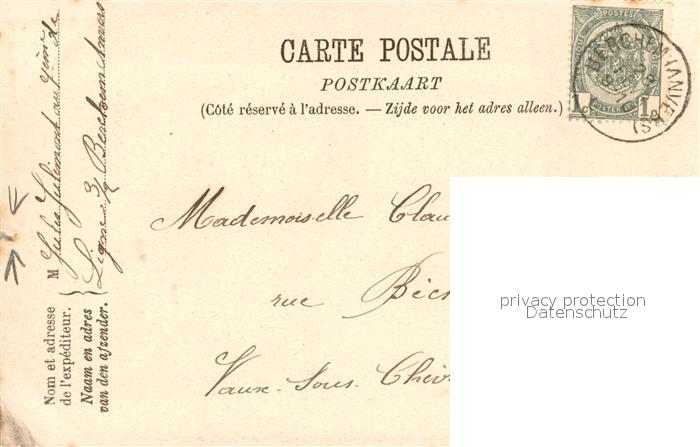 CARTE POSTALE
POSTKAART
(Côté réservé à l'adresse. — Zijde voor het adres alleen.)
POSTES
1 1
BERCHEM (ANVERS)
Mademoiselle Clau
rue Béc
Vaux-Sous-Chèv
privacy protection
Datenschutz
Nom et adresse
de l'expéditeur.
Naam en adres
van den afzender.
M Jules
Ligne Berchem Anvers